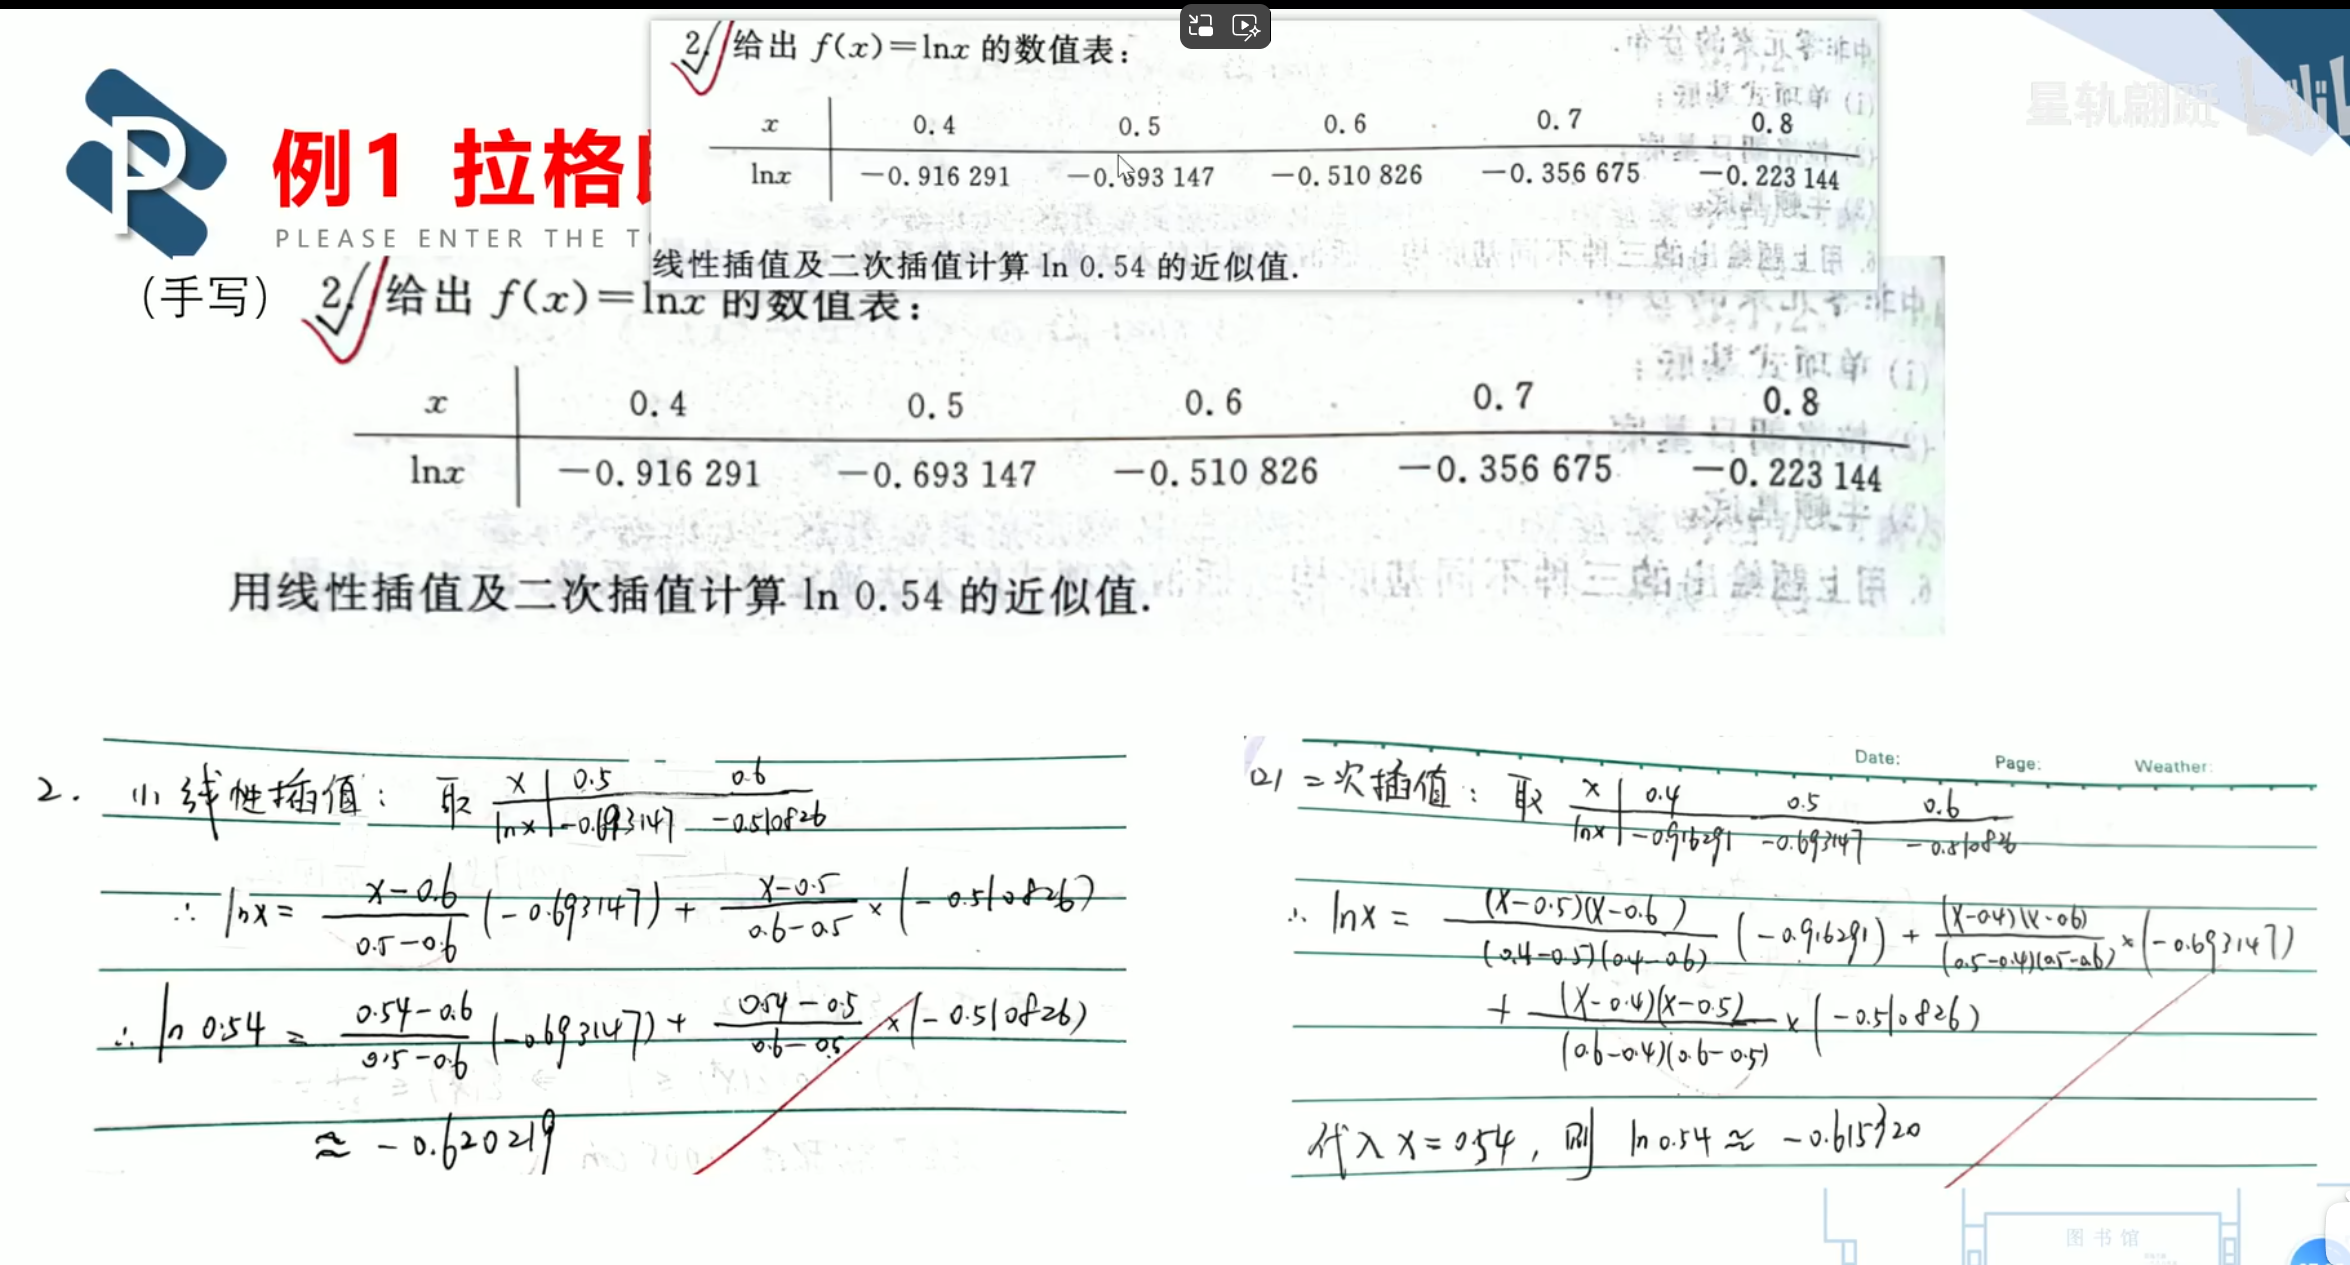 2. 给出 f(x)=lnx 的数值表:
x 0.4 0.5 0.6 0.7 0.8
lnx -0.916 291 -0.693 147 -0.510 826 -0.356 675 -0.223 144
线性插值及二次插值计算 ln 0.54 的近似值.
星轨翩跹 bili
P
例1 拉格
PLEASE ENTER THE
(手写)
2. 给出 f(x)=lnx 的数值表:
x 0.4 0.5 0.6 0.7 0.8
lnx -0.916 291 -0.693 147 -0.510 826 -0.356 675 -0.223 144
用线性插值及二次插值计算 ln 0.54 的近似值.
2. (1) 线性插值: 取 x 0.5 0.6
lnx -0.693147 -0.510826
∴ lnx = (x-0.6)/(0.5-0.6) (-0.693147) + (x-0.5)/(0.6-0.5) × (-0.510826)
∴ ln 0.54 = (0.54-0.6)/(0.5-0.6) (-0.693147) + (0.54-0.5)/(0.6-0.5) × (-0.510826)
≈ -0.620219
Date: Page: Weather:
(2) 二次插值: 取 x 0.4 0.5 0.6
lnx -0.916291 -0.693147 -0.510826
∴ lnx = (x-0.5)(x-0.6)/(0.4-0.5)(0.4-0.6) (-0.916291) + (x-0.4)(x-0.6)/(0.5-0.4)(0.5-0.6) × (-0.693147)
+ (x-0.4)(x-0.5)/(0.6-0.4)(0.6-0.5) × (-0.510826)
代入 x=0.54, 则 ln 0.54 ≈ -0.615320
图书馆